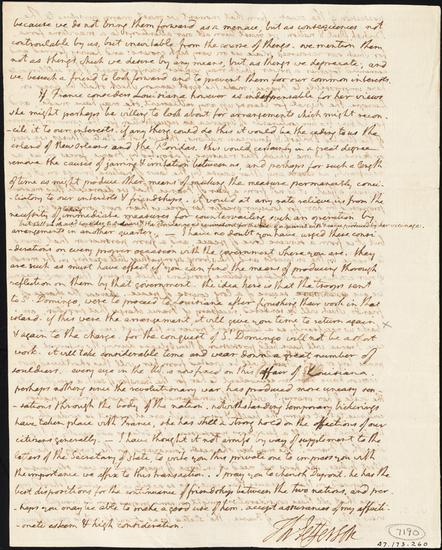 because we do not bring them forward as a menace, but as consequences not
controulable by us, but inevitable from the course of things. we mention them
not as things which we desire by any means, but as things we deprecate; and
we beseech a friend to look forward and to prevent them for our common interests.
If France considers Louisiana however as indispensable for her views
she might perhaps be willing to look about for arrangements which might recon-
-cile it to our interests. if any thing could do this it would be the ceding to us the
island of New Orleans and the Floridas. this would certainly in a great degree
remove the causes of jarring & irritation between us, and perhaps for such a length
of time as might produce other means of making the measure permanently conci-
liatory to our interests & friendships. it would at any rate relieve us from the
necessity of taking immediate measures for countervailing such an operation by
arrangements in another quarter.
I have no doubt you have urged these consi-
-derations on every proper occasion with the government where you are. they
are such as must have effect if you can find the means of producing thorough
reflection on them by that government. the idea here is that the troops sent
to St. Domingo, were to proceed to Louisiana after finishing their work in that
island. if this were the arrangement, it will give you time to return again
& again to the charge. for the conquest of St. Domingo will not be a short
work. it will take considerable time and wear down a great number of
souldiers. every eye in the US. is now fixed on this affair of Louisiana.
perhaps nothing since the revolutionary war has produced more uneasy sen-
-sations through the body of the nation. notwithstanding temporary bickerings
have taken place with France, she has still a strong hold on the affections of our
citizens generally. — I have thought it not amiss, by way of supplement to the
letters of the Secretary of state to write you this private one to impress you with
the importance we affix to this transaction. I pray you to cherish Dupont. he has the
best dispositions for the continuance of friendship between the two nations, and per-
-haps you may be able to make a good use of him. accept assurances of my affecti-
-onate esteem & high consideration.
Th: Jefferson
7190
47.173.260